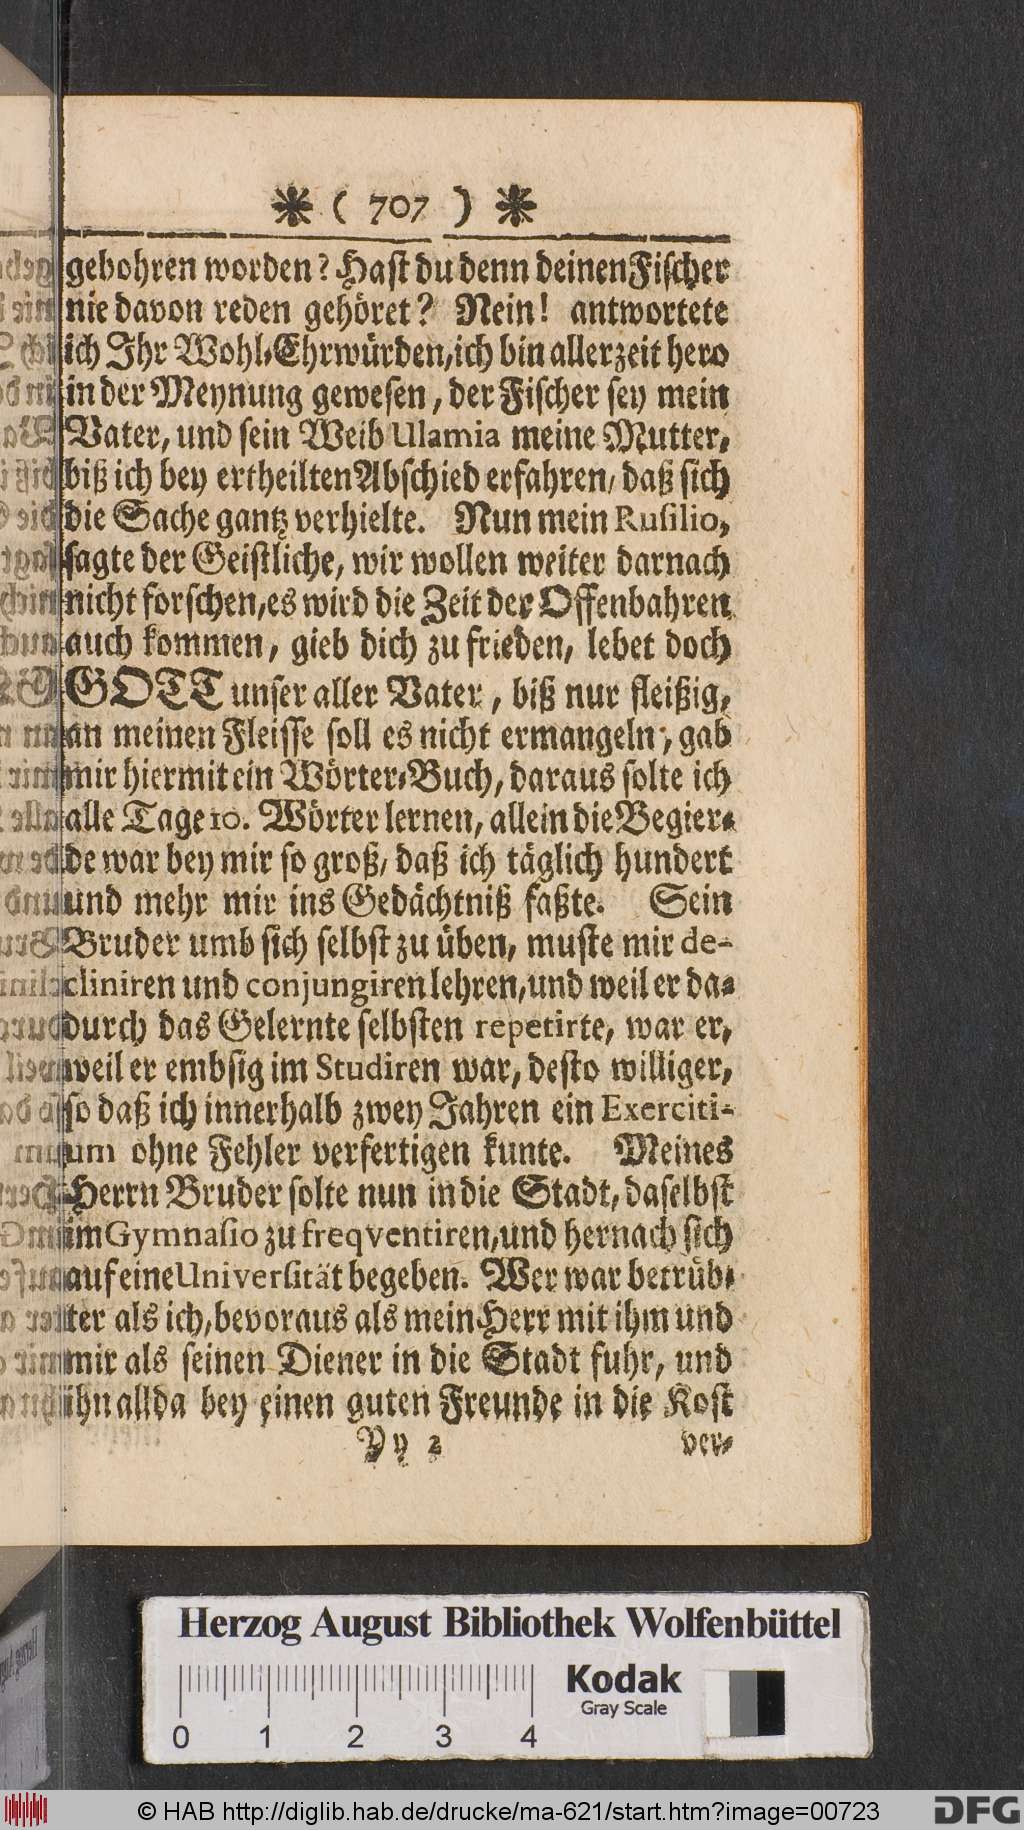 ❋ ( 707 ) ❋
gebohren worden? Hast du denn deinen Fischer
nie davon reden gehöret? Nein! antwortete
ich Ihr Wohl-Ehrwürden, ich bin allerzeit hero
in der Meynung gewesen, der Fischer sey mein
Vater, und sein Weib Ulamia meine Mutter,
biß ich bey ertheilten Abschied erfahren, daß sich
die Sache gantz verhielte. Nun mein Rusilio,
sagte der Geistliche, wir wollen weiter darnach
nicht forschen, es wird die Zeit der Offenbahren
auch kommen, gieb dich zu frieden, lebet doch
GOTT unser aller Vater, biß nur fleißig,
an meinen Fleisse soll es nicht ermangeln, gab
mir hiermit ein Wörter-Buch, daraus solte ich
alle Tage 10. Wörter lernen, allein die Begier-
de war bey mir so groß, daß ich täglich hundert
und mehr mir ins Gedächtniß faßte. Sein
Bruder umb sich selbst zu üben, muste mir de-
cliniren und conjungiren lehren, und weil er da-
durch das Gelernte selbsten repetirte, war er,
weil er embsig im Studiren war, desto williger,
so daß ich innerhalb zwey Jahren ein Exerciti-
um ohne Fehler verfertigen kunte. Meines
Herrn Bruder solte nun in die Stadt, daselbst
im Gymnasio zu freqventiren, und hernach sich
auf eine Universität begeben. Wer war betrüb-
ter als ich, bevoraus als mein Herr mit ihm und
mir als seinen Diener in die Stadt fuhr, und
ihn allda bey einen guten Freunde in die Kost
Yy 2 ver-
Herzog August Bibliothek Wolfenbüttel
Kodak
Gray Scale
0 1 2 3 4
© HAB http://diglib.hab.de/drucke/ma-621/start.htm?image=00723
DFG